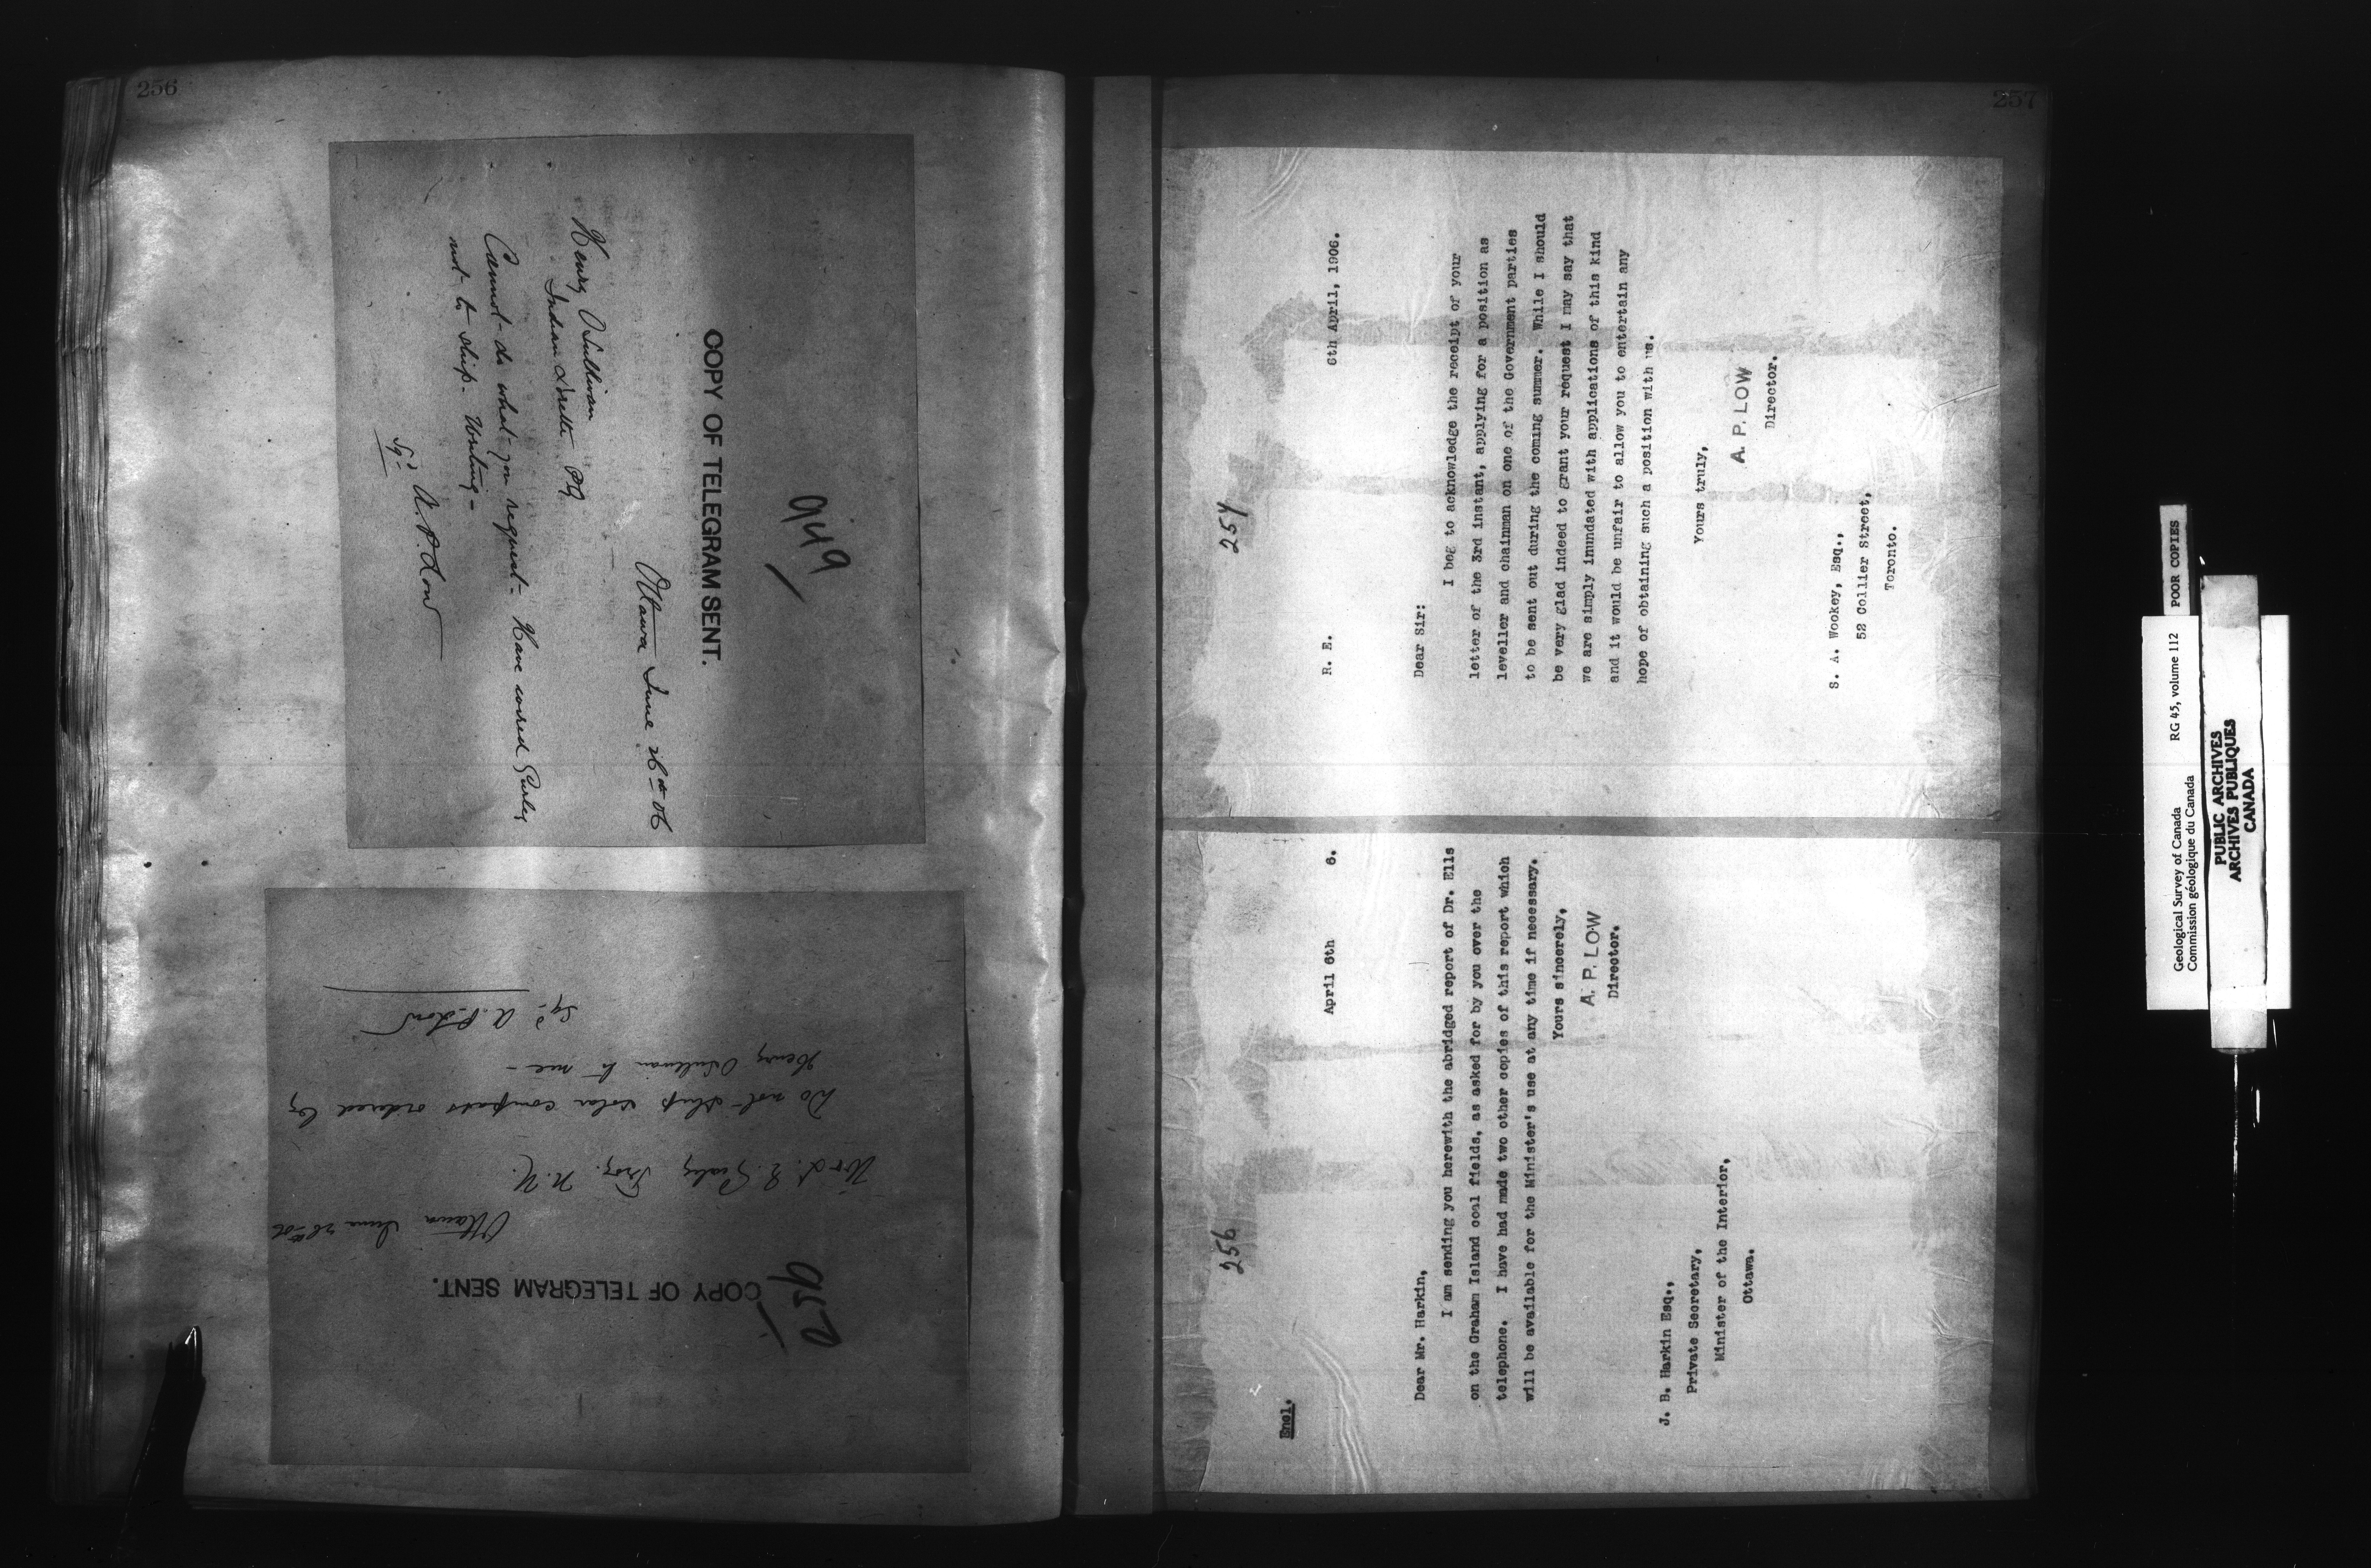 256
949
COPY OF TELEGRAM SENT.
Ottawa June 26th 06
Henry O'Sullivan
Indian Lorette PQ
Cannot do what you request - Have wired Gurley
not to ship - Writing -
Sgd A. P. Low
950
COPY OF TELEGRAM SENT.
Ottawa June 26th 06
W & L. E. Gurley Troy. N.Y.
Do not ship solar compass ordered by
Henry O'Sullivan to me -
Sgd A. P. Low
257
257
R. E.
6th April, 1906.
Dear Sir:
I beg to acknowledge the receipt of your
letter of the 3rd instant, applying for a position as
leveller and chainman on one of the Government parties
to be sent out during the coming summer. While I should
be very glad indeed to grant your request I may say that
we are simply inundated with applications of this kind
and it would be unfair to allow you to entertain any
hope of obtaining such a position with us.
Yours truly,
A. P. LOW
Director.
S. A. Wookey, Esq.,
52 Collier Street,
Toronto.
256
Encl.
April 6th 6.
Dear Mr. Harkin,
I am sending you herewith the abridged report of Dr. Ells
on the Graham Island coal fields, as asked for by you over the
telephone. I have had made two other copies of this report which
will be available for the Minister's use at any time if necessary.
Yours sincerely,
A. P. LOW
Director.
J. B. Harkin Esq.,
Private Secretary,
Minister of the Interior,
Ottawa.
Geological Survey of Canada
Commission géologique du Canada
RG 45, volume 112
POOR COPIES
PUBLIC ARCHIVES
ARCHIVES PUBLIQUES
CANADA